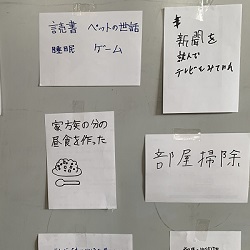 読書 ペットの世話
睡眠 ゲーム
新聞を
読んで
テレビもみてれ
家族の分の
昼食を作った
部屋掃除